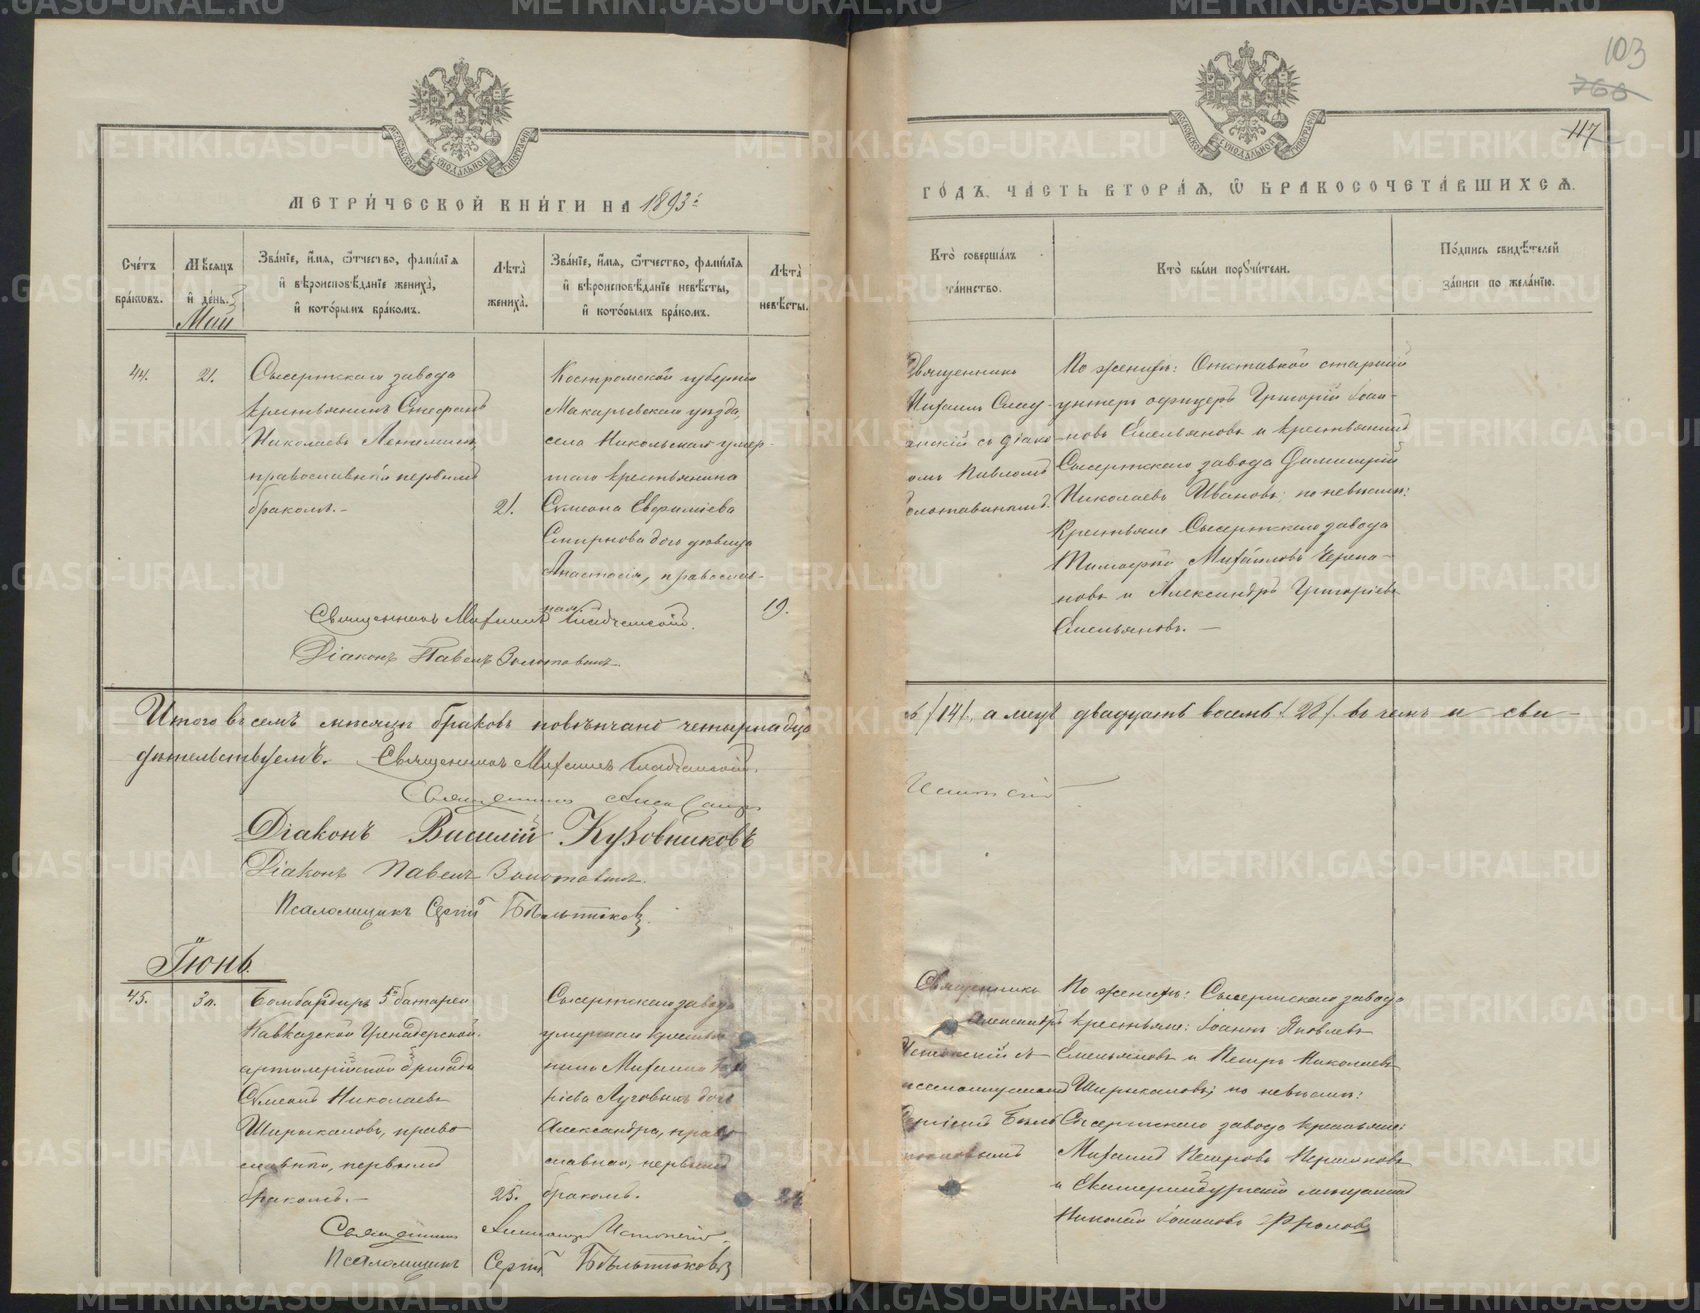 103
766
117
МЕТРИ́ЧЕСКОЙ КНИ́ГИ НА 1893й
ГО́ДЪ, ЧА́СТЬ ВТОРА́Ѧ, Ѿ БРАКОСОЧЕТА́ВШИХСѦ.
Сче́тъ бра́ковъ.
Мѣ́сѧцъ и де́нь.
Зва́нїе, и́мѧ, ѻ҆́тчество, фами́лїѧ и вѣроисповѣ́данїе жениха̀, и кото́рымъ бра́комъ.
Лѣта̀ жениха̀.
Зва́нїе, и́мѧ, ѻ҆́тчество, фами́лїѧ и вѣроисповѣ́данїе невѣ́сты, и кото́рымъ бра́комъ.
Лѣта̀ невѣ́сты.
Кто̀ соверша́лъ та́инство.
Кто̀ бы́ли порꙋчи́тели.
По́дпись свидѣ́телей за́писи по жела́нїю.
Май
44.
21.
Сысертскаго завода
крестьянинъ Стефанъ
Николаевъ
православный первымъ
бракомъ.-
21.
Костромской губернии
Макарьевскаго уѣзда,
села Никольская умер-
шаго крестьянина
Сѵмеона Евфиміева
Смирнова дочь дѣвица
Анастасія, православ-
ная.
19.
Священникъ
Михаилъ
съ діако-
номъ Павломъ
Золотавинымъ.
По женихѣ: Отставной старшій
унтеръ офицеръ Григорій Іоан-
новъ Емельяновъ и крестьянинъ
Сысертскаго завода Димитрій
Николаевъ Ивановъ; по невѣстѣ:
Крестьяне Сысертскаго завода
Тимофей Михаиловъ Черепа-
новъ и Александръ Григорьевъ
Емельяновъ. —
Священникъ Михаилъ
Діаконъ Павелъ Золотавинъ
Итого въ семъ мѣсяцѣ браковъ повѣнчано четырнадца
ть /14/, а лицъ двадцать восемь /28/. въ чемъ и сви-
дѣтельствуемъ. Священникъ Михаилъ
Священникъ Александръ
Истокскій
Діаконъ Василій Кузовниковъ
Діаконъ Павелъ Золотавинъ.
Псаломщикъ Сергій Бѣльтюковъ.
Іюнь.
45.
30.
Бомбардиръ 5й батареи
Кавказской Гренадерской
артилерійской бригады
Сѵмеонъ Николаевъ
Ширыкаловъ, право
славный, первымъ
бракомъ.-
25.
Сысертскаго завода
умершаго крестья
нина Михаила
Луговыхъ дочь
Александра, право
славная, первымъ
бракомъ.
Священникъ
Александръ
Истокскій съ
псаломщикомъ
Сергіемъ Бѣль
тюковымъ
По женихѣ: Сысертскаго завода
крестьяне: Іоаннъ Яковлевъ
Емельяновъ и Петръ Николаевъ
Ширыкаловъ; по невѣстѣ:
Сысертскаго завода крестьяне:
Михаилъ Петровъ
и Екатеринбургскій мѣщанинъ
Николай Іоанновъ Фроловъ
Священникъ Александръ Истокскій.
Псаломщикъ Сергій Бѣльтюковъ
METRIKI.GASO-URAL.RU